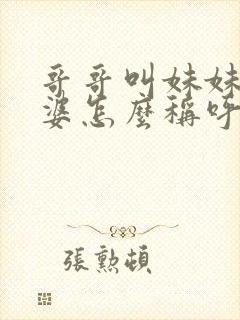 哥哥叫妹妹
婆怎麼稱呼
張勲頓